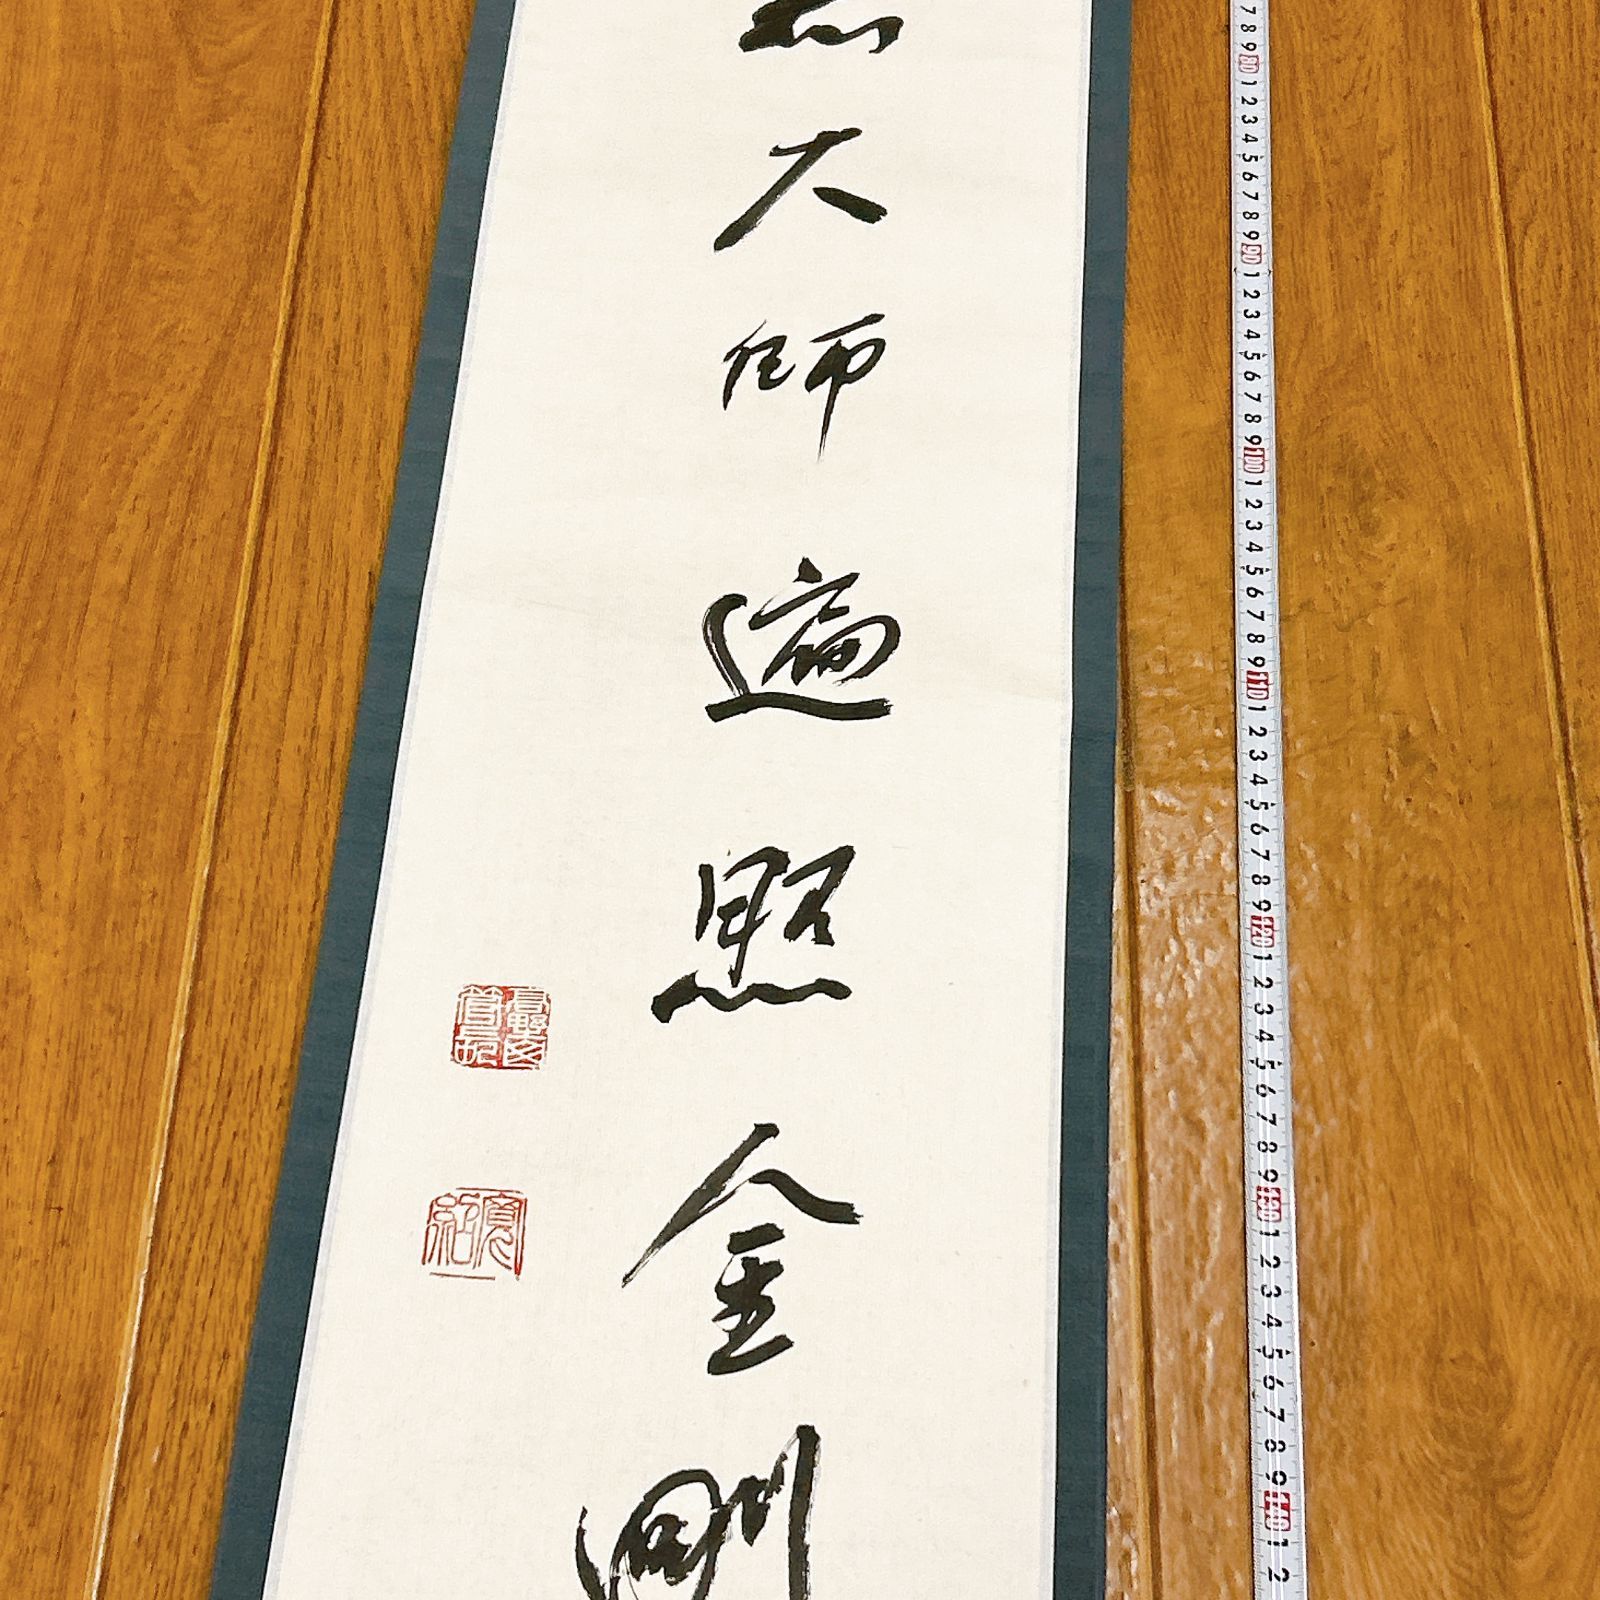 大師遍照金剛
寛紹
7 8 9 80 1 2 3 4 5 6 7 8 9 90 1 2 3 4 5 6 7 8 9 100 1 2 3 4 5 6 7 8 9 110 1 2 3 4 5 6 7 8 9 120 1 2 3 4 5 6 7 8 9 130 1 2 3 4 5 6 7 8 9 140 1 2